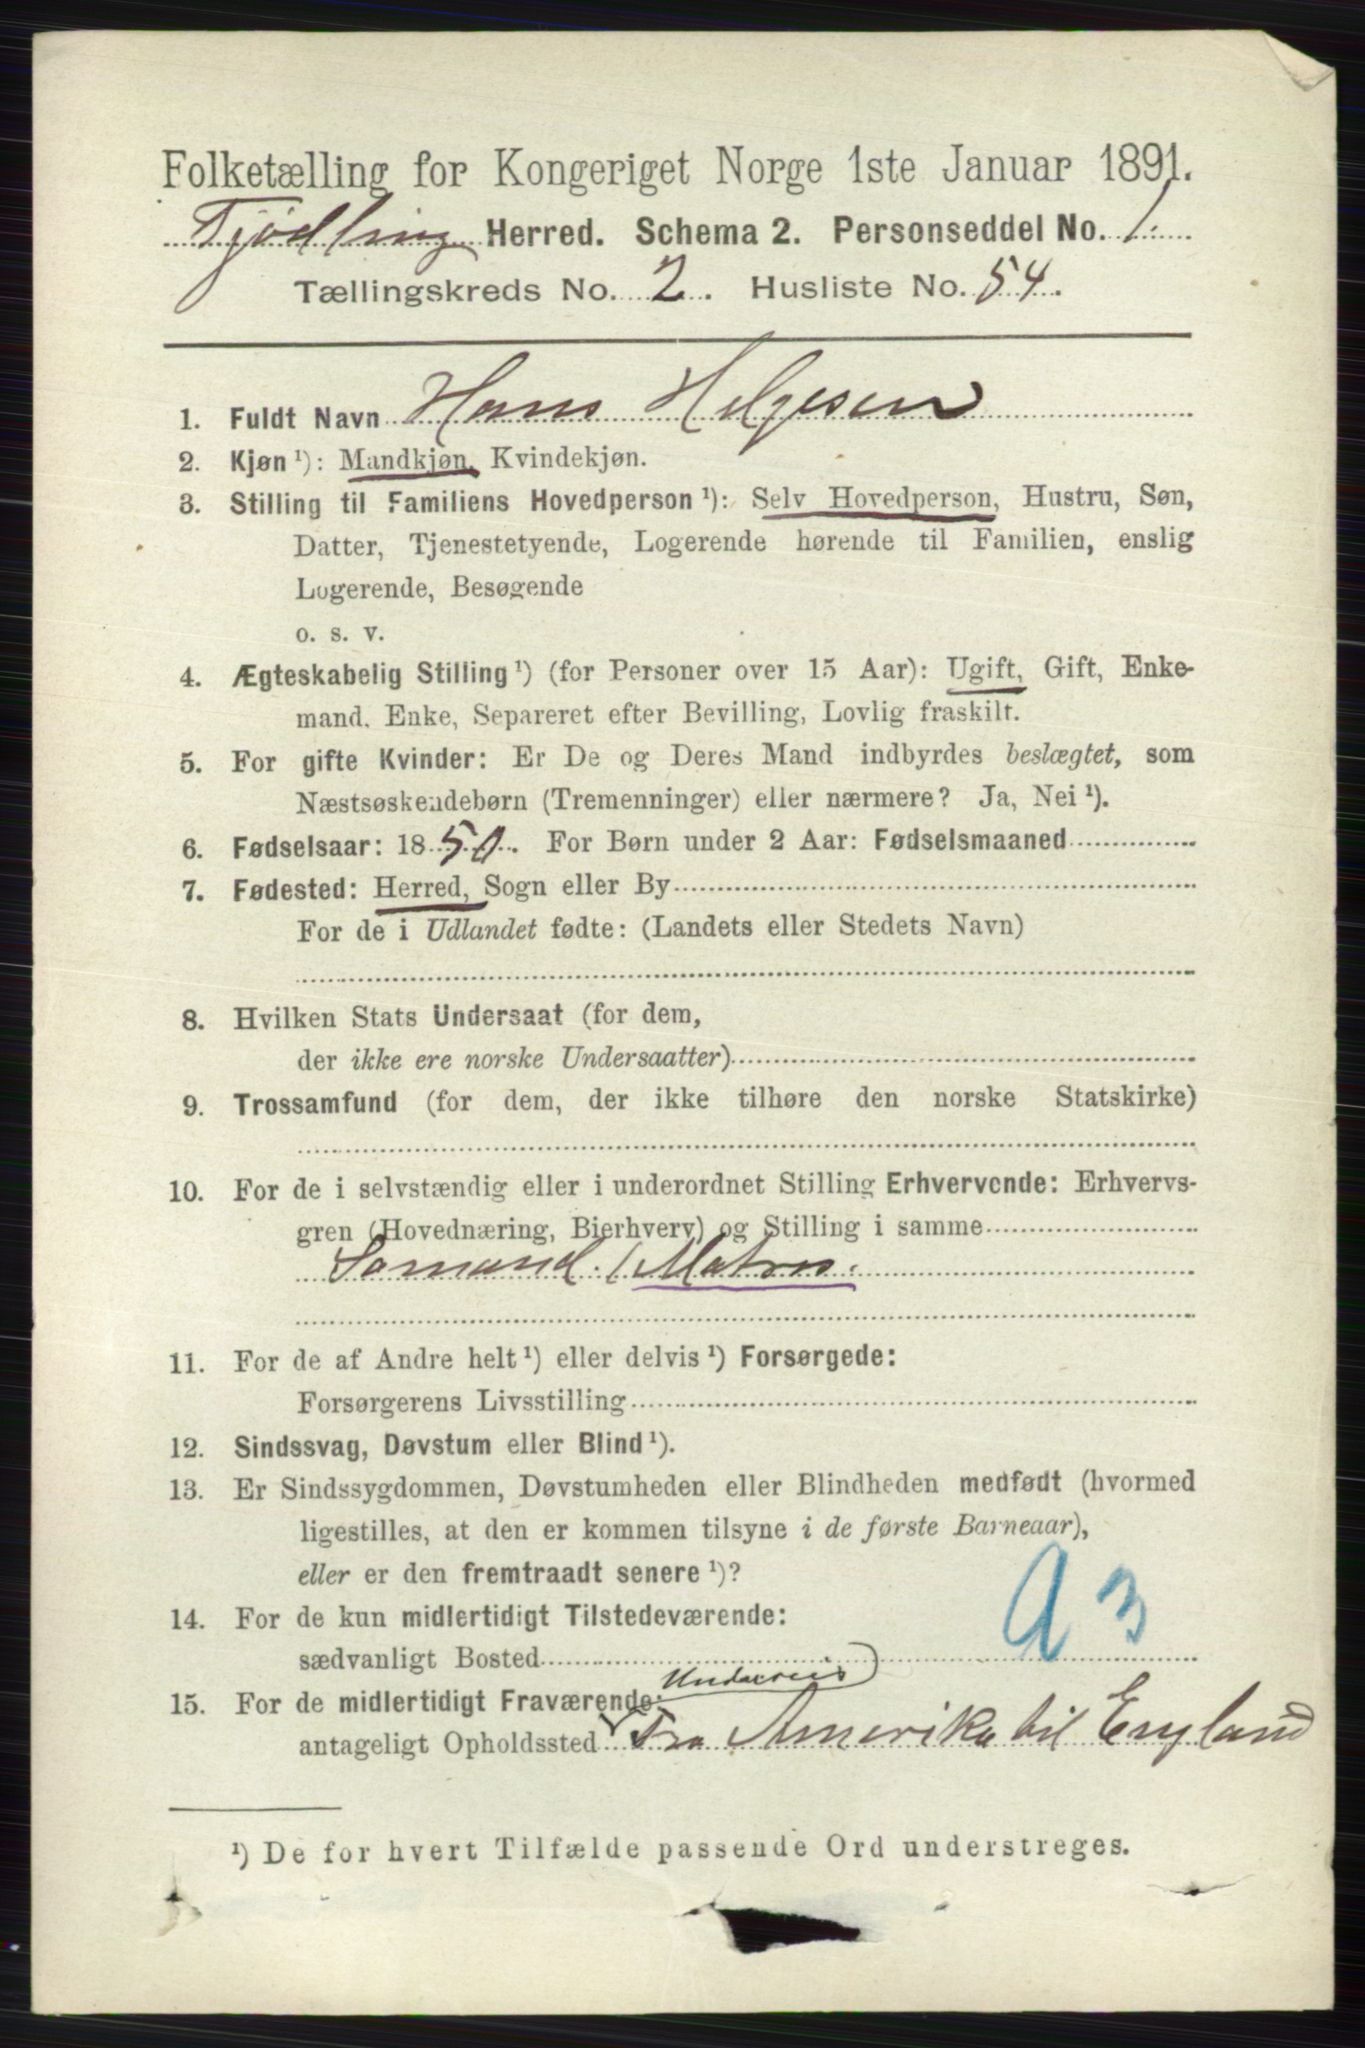 Folketælling for Kongeriget Norge 1ste Januar 1891.
Tjødling Herred. Schema 2. Personseddel No. 1.
Tællingskreds No. 2. Husliste No. 54.
1. Fuldt Navn Hans Helgesen
2. Kjøn ¹): Mandkjøn, Kvindekjøn.
3. Stilling til Familiens Hovedperson ¹): Selv Hovedperson, Hustru, Søn,
Datter, Tjenestetyende, Logerende hørende til Familien, enslig
Logerende, Besøgende
o. s. v.
4. Ægteskabelig Stilling ¹) (for Personer over 15 Aar): Ugift, Gift, Enke-
mand, Enke, Separeret efter Bevilling, Lovlig fraskilt.
5. For gifte Kvinder: Er De og Deres Mand indbyrdes beslægtet, som
Næstsøskendebørn (Tremenninger) eller nærmere? Ja, Nei ¹).
6. Fødselsaar: 1850. For Børn under 2 Aar: Fødselsmaaned
7. Fødested: Herred, Sogn eller By
For de i Udlandet fødte: (Landets eller Stedets Navn)
8. Hvilken Stats Undersaat (for dem,
der ikke ere norske Undersaatter)
9. Trossamfund (for dem, der ikke tilhøre den norske Statskirke)
10. For de i selvstændig eller i underordnet Stilling Erhvervende: Erhvervs-
gren (Hovednæring, Bierhverv) og Stilling i samme
Sømand. / Matros.
11. For de af Andre helt ¹) eller delvis ¹) Forsørgede:
Forsørgerens Livsstilling
12. Sindssvag, Døvstum eller Blind ¹).
13. Er Sindssygdommen, Døvstumheden eller Blindheden medfødt (hvormed
ligestilles, at den er kommen tilsyne i de første Barneaar),
eller er den fremtraadt senere ¹)?
14. For de kun midlertidigt Tilstedeværende:
sædvanligt Bosted
a 3
15. For de midlertidigt Fraværende:
Underveis
antageligt Opholdssted Fra Amerika til England
¹) De for hvert Tilfælde passende Ord understreges.